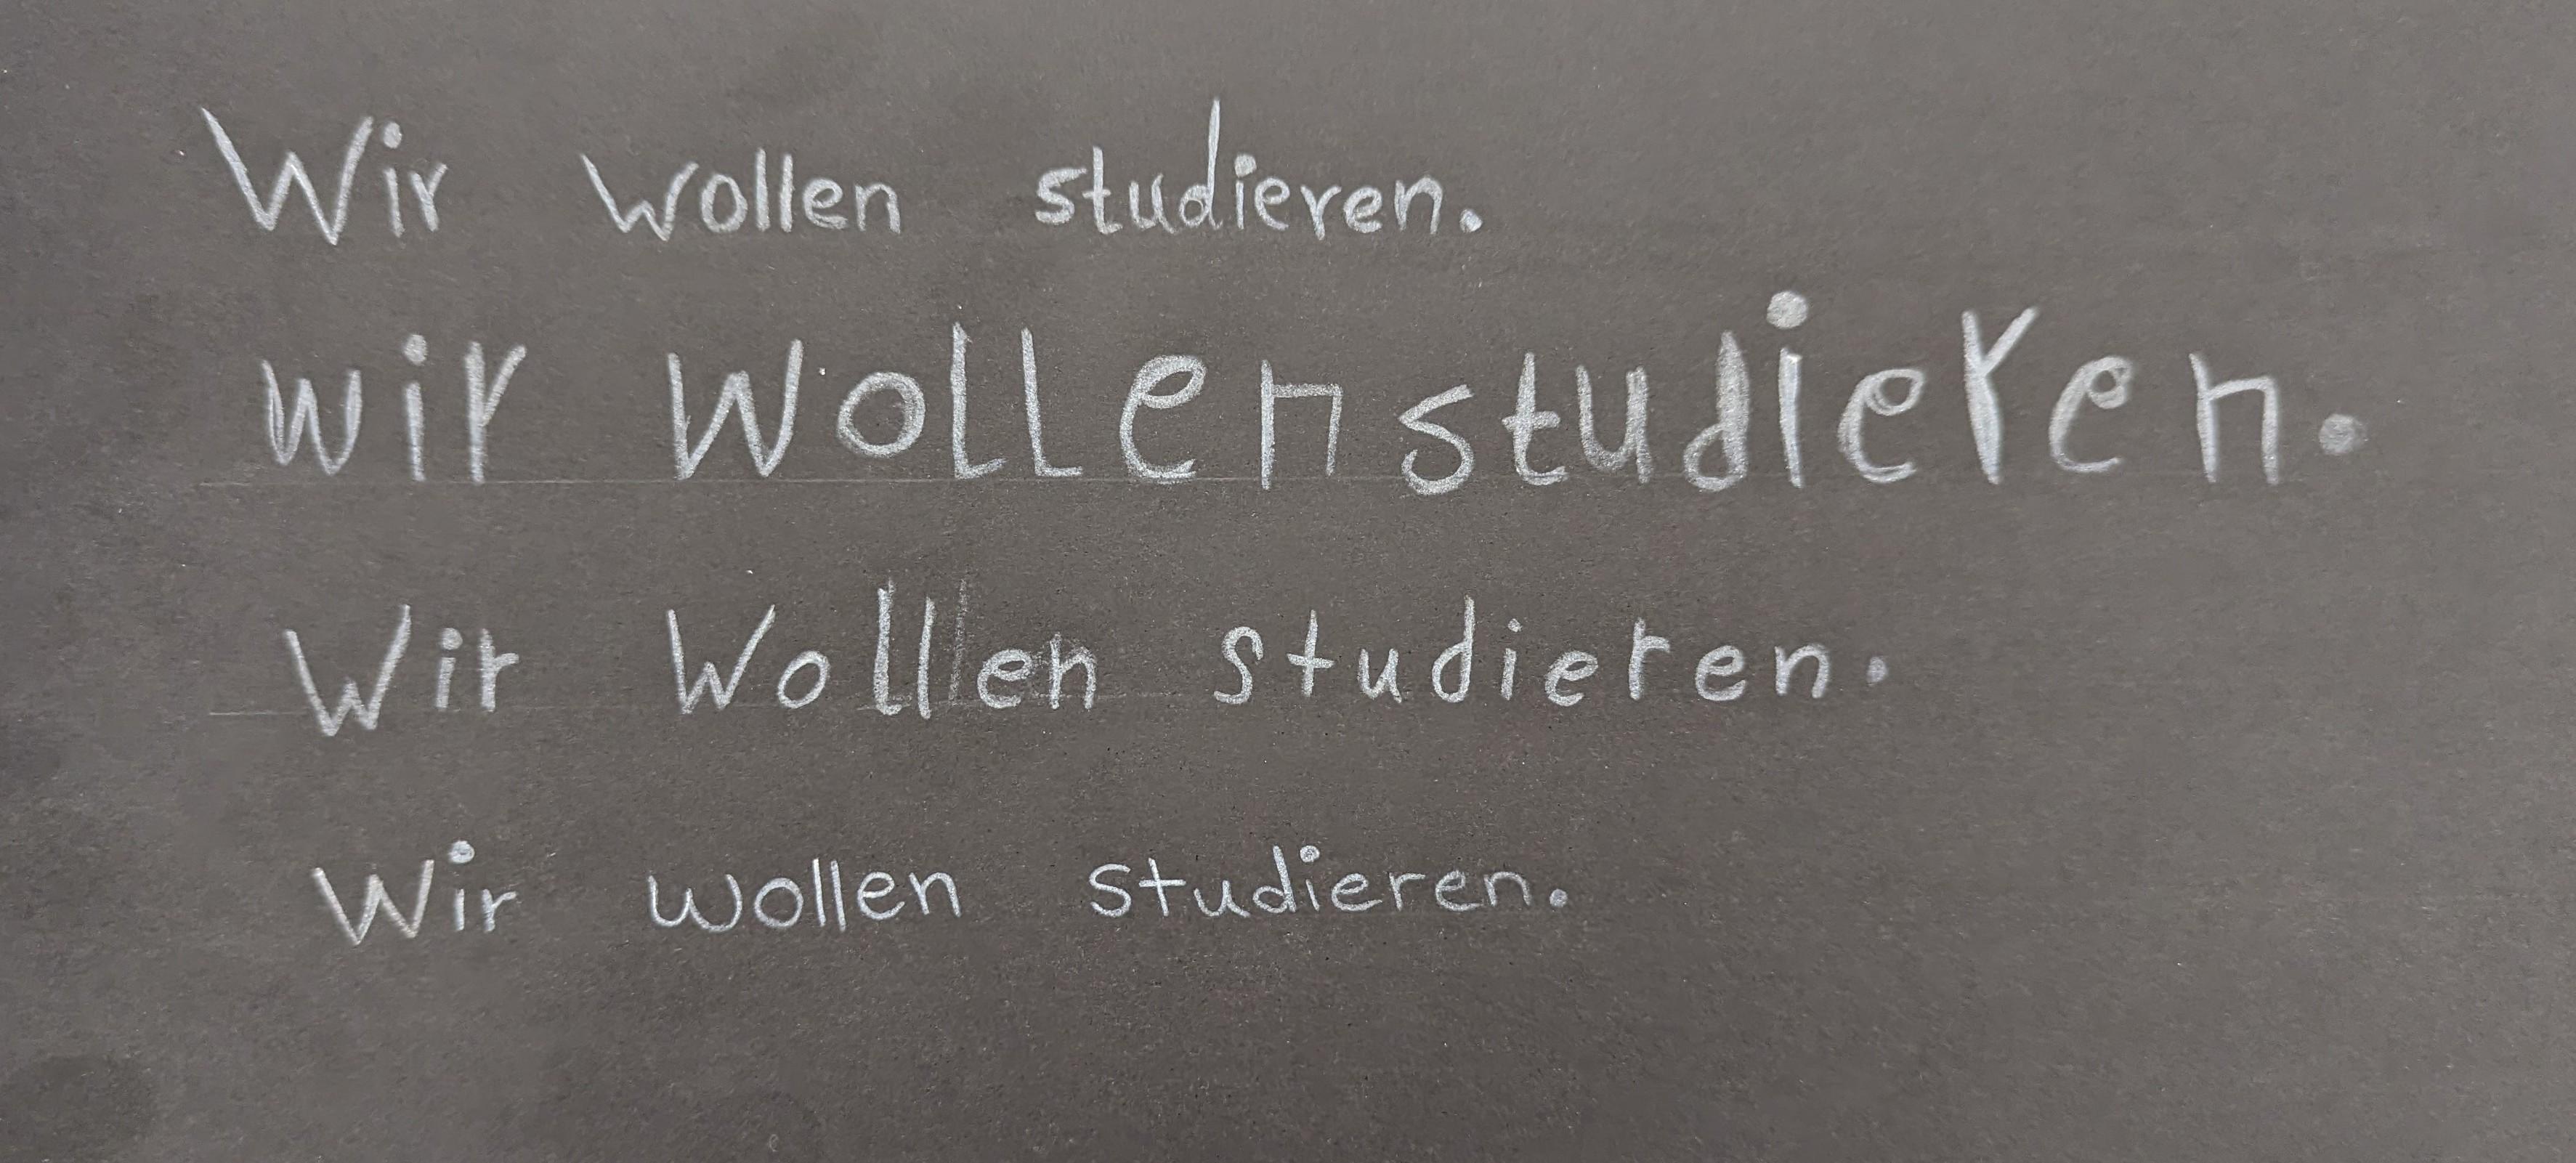 Wir wollen studieren.
wir wollen studieren.
Wir Wollen studieren.
Wir wollen studieren.